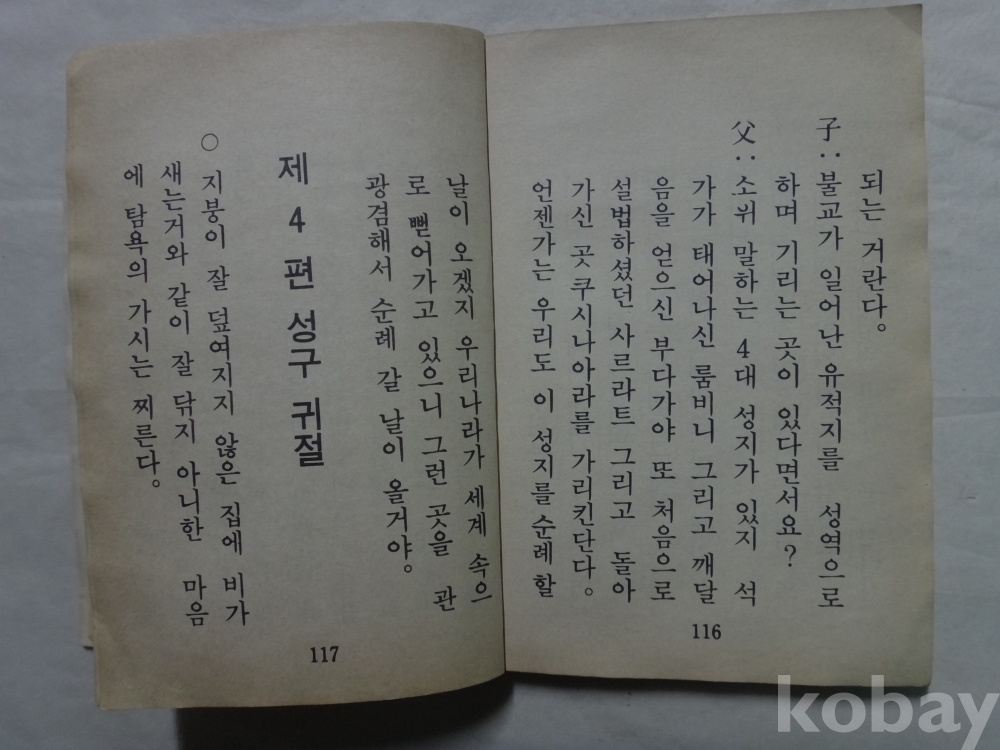 되는 거란다。
子：불교가 일어난 유적지를 성역으로
하며 기리는 곳이 있다면서요？
父：소위 말하는 4대 성지가 있지 석
가가 태어나신 룸비니 그리고 깨달
음을 얻으신 부다가야 또 처음으로
설법하셨던 사르라트 그리고 돌아
가신 곳 쿠시나아라를 가리킨단다。
언젠가는 우리도 이 성지를 순례할
116
날이 오겠지 우리나라가 세계 속으
로 뻗어가고 있으니 그런 곳을 관
광겸해서 순례 갈 날이 올거야。
제 4 편 성구 귀절
○ 지붕이 잘 덮여지지 않은 집에 비가
새는거와 같이 잘 닦지 아니한 마음
에 탐욕의 가시는 찌른다。
117
kobay